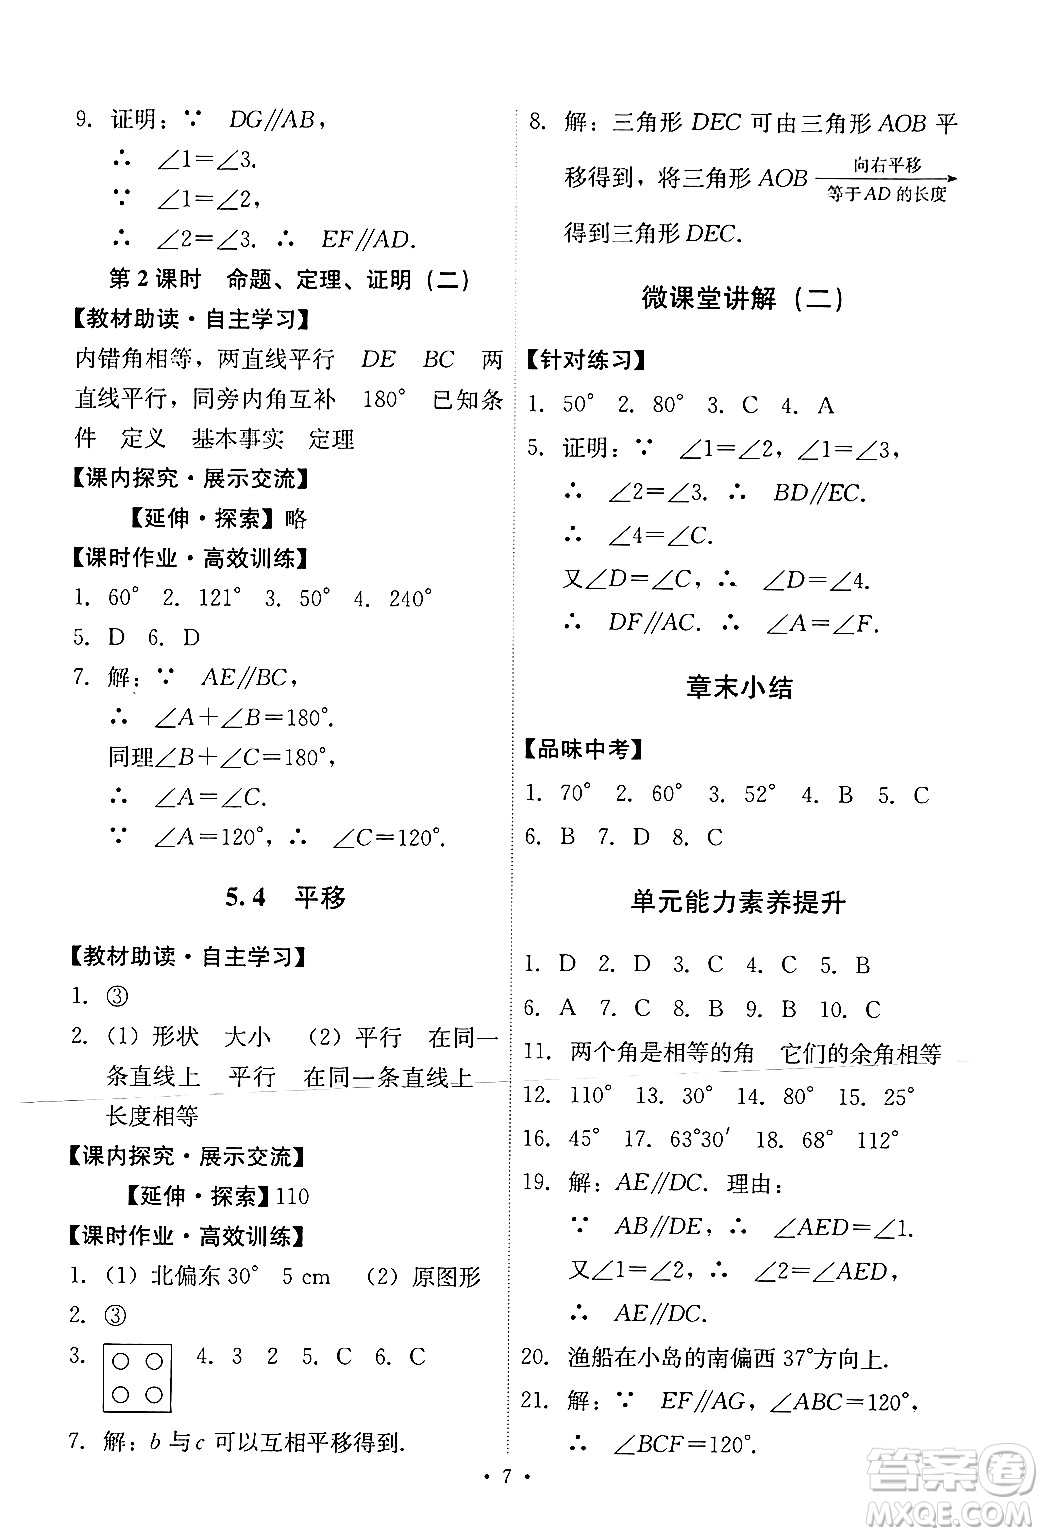 9. 证明：∵　DG∥AB，
∴　∠1＝∠3.
∵　∠1＝∠2，
∴　∠2＝∠3. ∴　EF∥AD.
第 2 课时　命题、定理、证明（二）
【教材助读·自主学习】
内错角相等，两直线平行　DE　BC　两
直线平行，同旁内角互补　180°　已知条
件　定义　基本事实　定理
【课内探究·展示交流】
【延伸·探索】略
【课时作业·高效训练】
1. 60°　2. 121°　3. 50°　4. 240°
5. D　6. D
7. 解：∵　AE∥BC，
∴　∠A＋∠B＝180°.
同理∠B＋∠C＝180°，
∴　∠A＝∠C.
∵　∠A＝120°，∴　∠C＝120°.
5.4　平移
【教材助读·自主学习】
1. ③
2. （1）形状　大小　（2）平行　在同一
条直线上　平行　在同一条直线上
长度相等
【课内探究·展示交流】
【延伸·探索】110
【课时作业·高效训练】
1. （1）北偏东30°　5 cm　（2）原图形
2. ③
3. 　4. 3　2　5. C　6. C
7. 解：b 与 c 可以互相平移得到.
8. 解：三角形 DEC 可由三角形 AOB 平
移得到，将三角形 AOB 向右平移
等于 AD 的长度
得到三角形 DEC.
微课堂讲解（二）
【针对练习】
1. 50°　2. 80°　3. C　4. A
5. 证明：∵　∠1＝∠2，∠1＝∠3，
∴　∠2＝∠3. ∴　BD∥EC.
∴　∠4＝∠C.
又∠D＝∠C，∴　∠D＝∠4.
∴　DF∥AC. ∴　∠A＝∠F.
章末小结
【品味中考】
1. 70°　2. 60°　3. 52°　4. B　5. C
6. B　7. D　8. C
单元能力素养提升
1. D　2. D　3. C　4. C　5. B
6. A　7. C　8. B　9. B　10. C
11. 两个角是相等的角　它们的余角相等
12. 110°　13. 30°　14. 80°　15. 25°
16. 45°　17. 63°30′　18. 68°　112°
19. 解：AE∥DC. 理由：
∵　AB∥DE，∴　∠AED＝∠1.
又∠1＝∠2，∴　∠2＝∠AED，
∴　AE∥DC.
20. 渔船在小岛的南偏西 37°方向上.
21. 解：∵　EF∥AG，∠ABC＝120°，
∴　∠BCF＝120°.
· 7 ·
答案卷
MXQE.COM